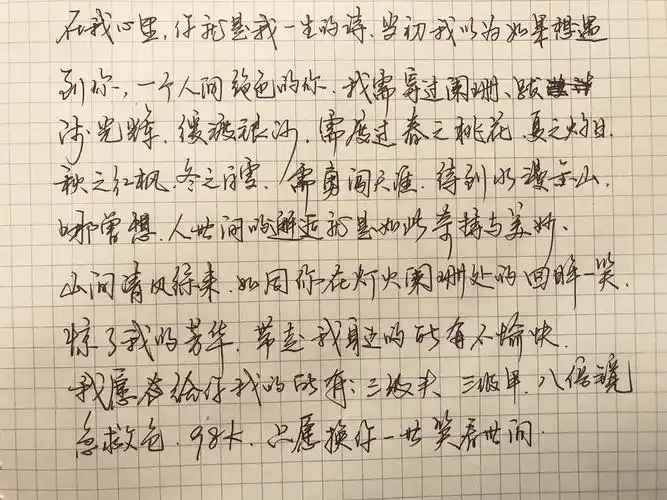 在我心里,你就是我一生的诗.当初我以为如果想遇
到你,一个人间绝色的你.我需寻过阑珊、跋
涉光辉,缓渡银沙,需度过春之桃花、夏之灼日.
秋之红枫.冬之白雪.需勇闯天涯.待到水漫金山.
哪曾想.人世间的邂逅就是如此奇搭与美妙、
山间清风徐来.如同你在灯火阑珊处的回眸一笑.
惊了我的芳华.带走我身边的所有不愉快.
我愿给你我的所有:三级头 三级甲.八倍镜
急救包.98k.只愿换你一世笑看世间.